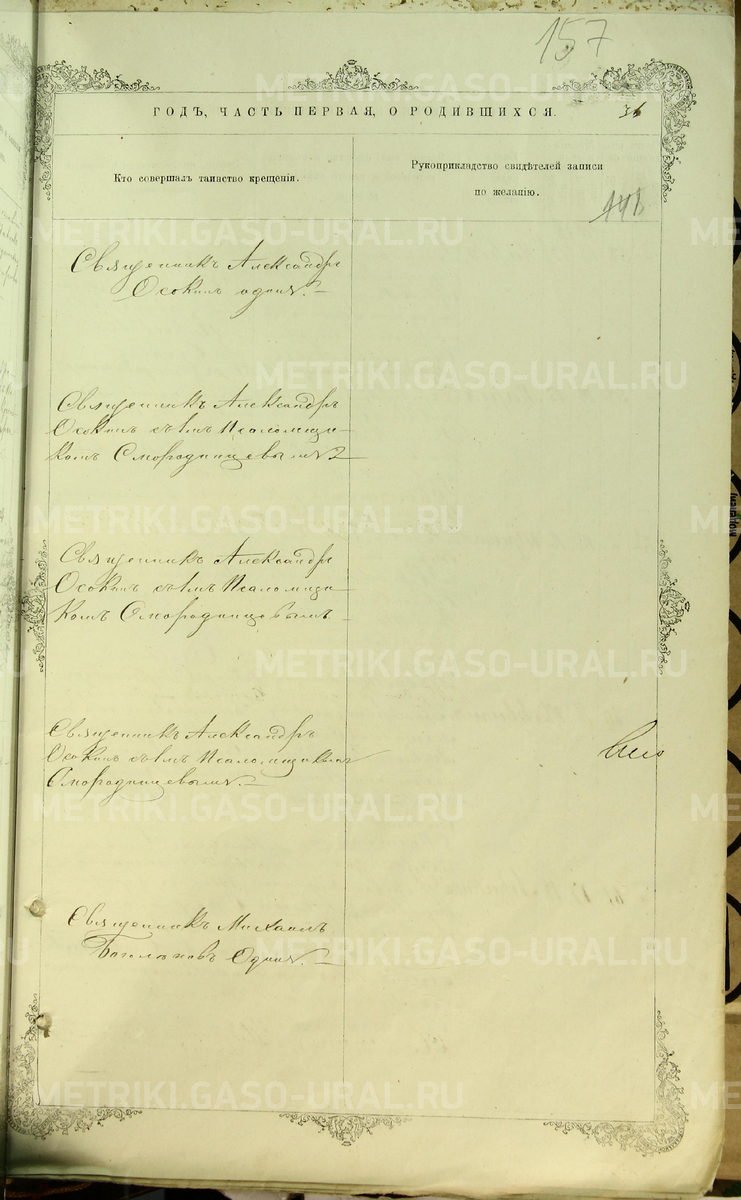 157
ГОДЪ, ЧАСТЬ ПЕРВАЯ, О РОДИВШИХСЯ.
36
Кто совершалъ таинство крещенія.
Рукоприкладство свидѣтелей записи
по желанію.
Священникъ Александръ
Осокинъ одинъ.
Священникъ Александръ
Осокинъ съ 1мъ Псаломщи-
комъ Смородинцевымъ
Священникъ Александръ
Осокинъ съ 1мъ Псаломщи-
комъ Смородинцовымъ
Священникъ Александръ
Осокинъ съ 1мъ Псаломщикомъ
Смородинцевымъ.
Священникъ Михаилъ
Одинъ.
METRIKI.GASO-URAL.RU